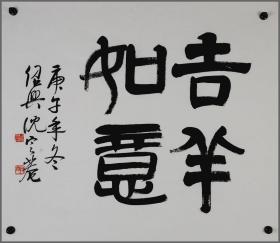 吉羊
如意
庚午年冬
绍兴沈定庵